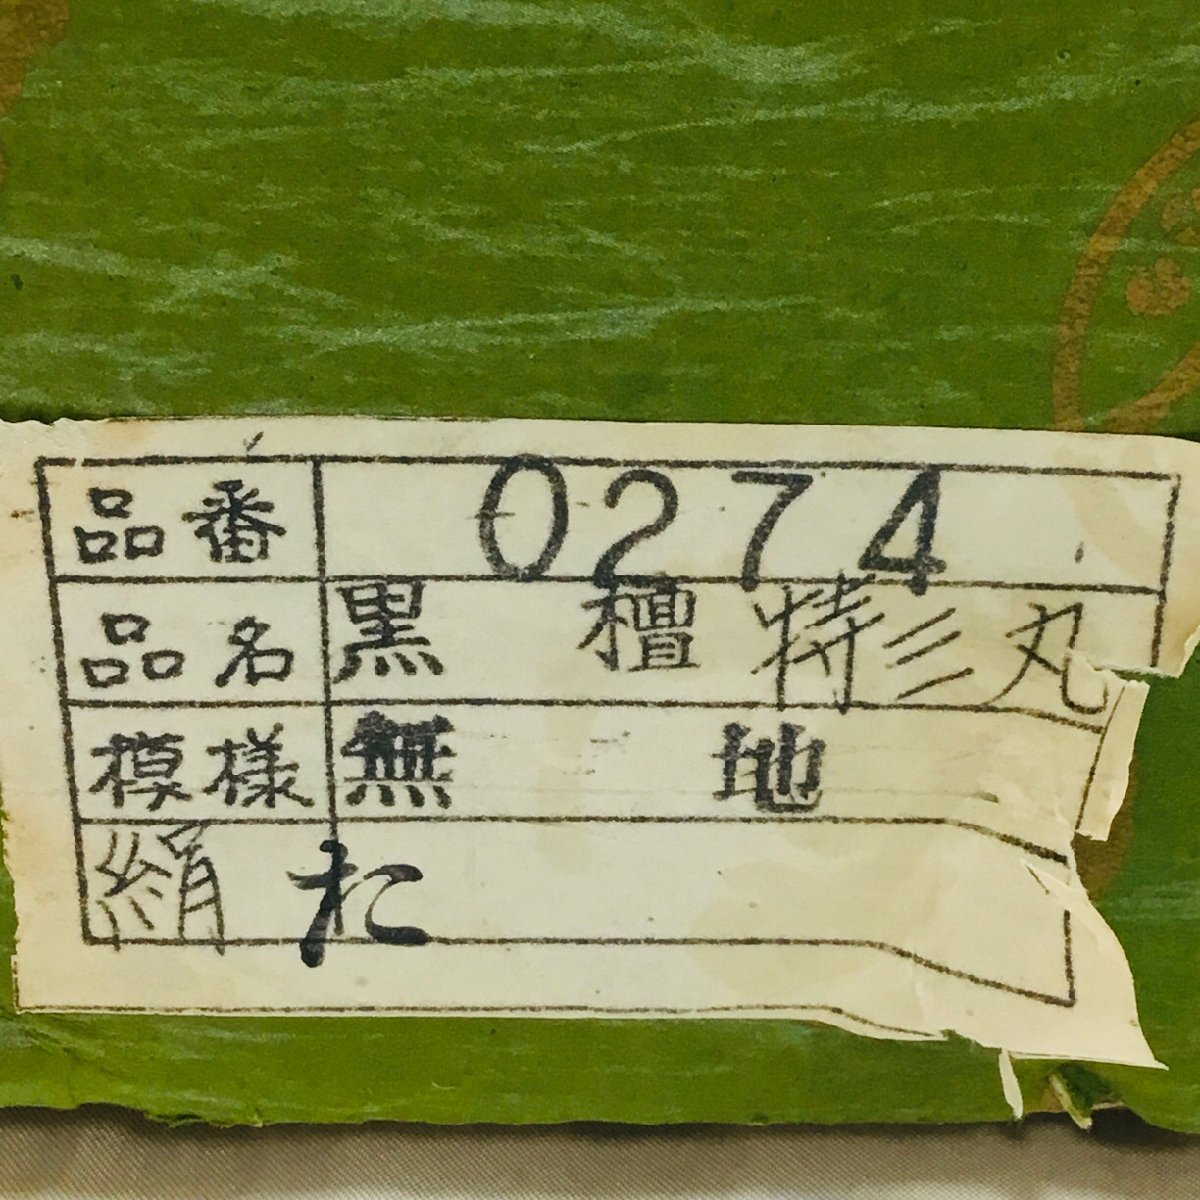 品番 0274
品名 黒檀特彡丸
模様 無地
絹 た